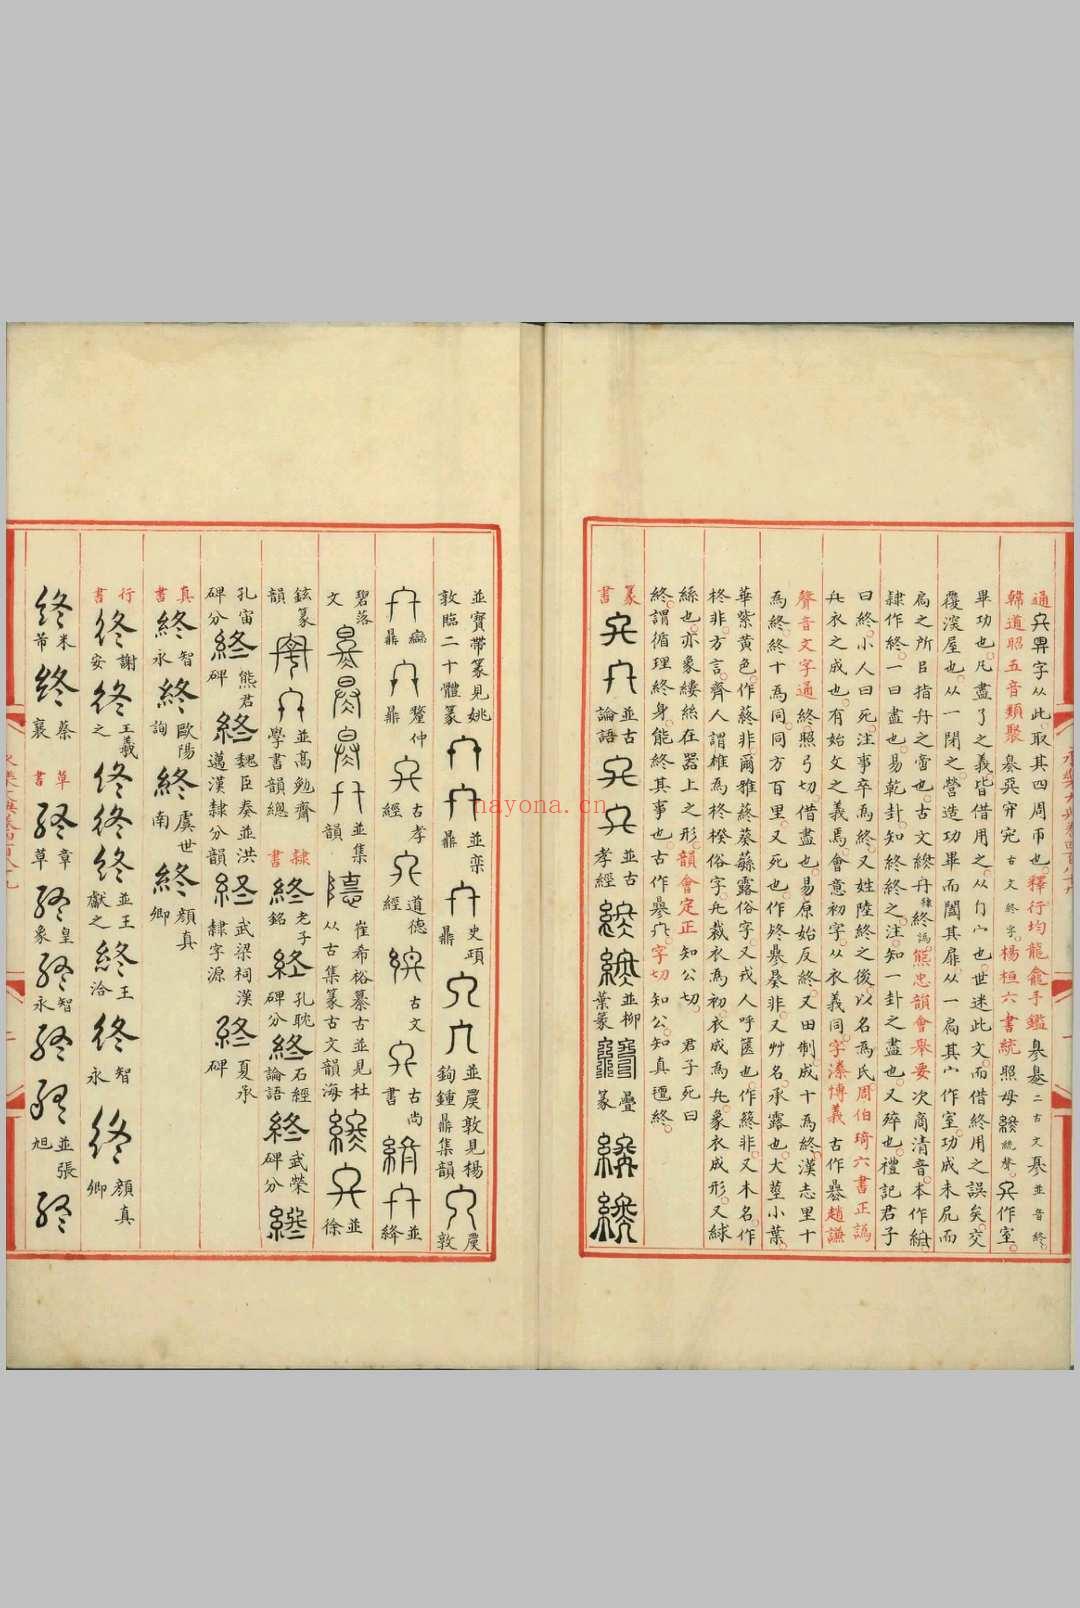 通 字从此取其四周帀也。釋行均龍龕手鑑 二古文 並音終。
韓道昭五音類聚 古文終字。楊桓六書統 照母 聲。作室
畢功也。凡盡了之義皆借用之。从冂宀也。世迷此文。而借終用之誤矣。交
覆深屋也。从一閉之。營造功畢而闔其扉。从一扃其宀作室。功成未凥而
扃之所㠯指 之 也。古文 終譌。熊忠韻會舉要 次商清音。本作
隸作終。一曰盡也。易乾卦。知終終之。注。知一卦之盡也。又 也。禮記君子
曰終。小人曰死。注事卒爲終。又姓。陸終之後。以名爲氏。周伯琦六書正譌
衣之成也。有始夂之義焉。會意初字。从衣義同。字潫博義 古作 趙謙
聲音文字通 終照弓切。借盡也。易原始反終。又田制。成十爲終。漢志里十
爲終。終十爲同。同方百里。又死也。作 非。又艸名。承露也。大莖小葉。
華紫黄色。作蔠非。爾雅蔠葵蘩露。俗字。又戎人呼篋也。作䈺非。又木名。作
柊非。方言。齊人謂椎爲柊楑。俗字。 裁衣爲初。衣成爲 象衣成形。又絿
絲也。亦象縷絲在器上之形。韻會定正 知公切。君子死曰
終。謂循理終身。能終其事也。古作 字切 知公。知真邅終。
篆書 並古論語 並古孝經 並柳葉篆 疊篆
並寶帶篆見姚敦臨二十體篆 並欒鼎 史頊鼎 並㞡敦見楊鉤鍾鼎集韻 㞡敦
鼎 釐仲鼎 古孝經 道德經 古文 古尚書 並絳
碧落文 並集韻 从古集篆古文韻海 崔希裕纂古並見杜 並徐
鉉篆韻 並高勉齋學書韻總 隸書 終 老子銘 終 孔耽碑分 終 石經論語 終 武榮碑分
孔宙碑分 終 熊君碑 終 魏臣奏並洪邁漢隸分韻 終 武梁祠漢隸字源 終 夏承碑
真書 終 智永 終 歐陽詢 終 虞世南 終 顔真卿
行書 終 謝安 終 王羲之 終 終 終 並王獻之 終 王洽 終 智永 終 顔真卿
終 米芾 終 蔡襄 草書 終 章草 終 皇象 終 智永 終 終 並張旭 終
nayona.cn